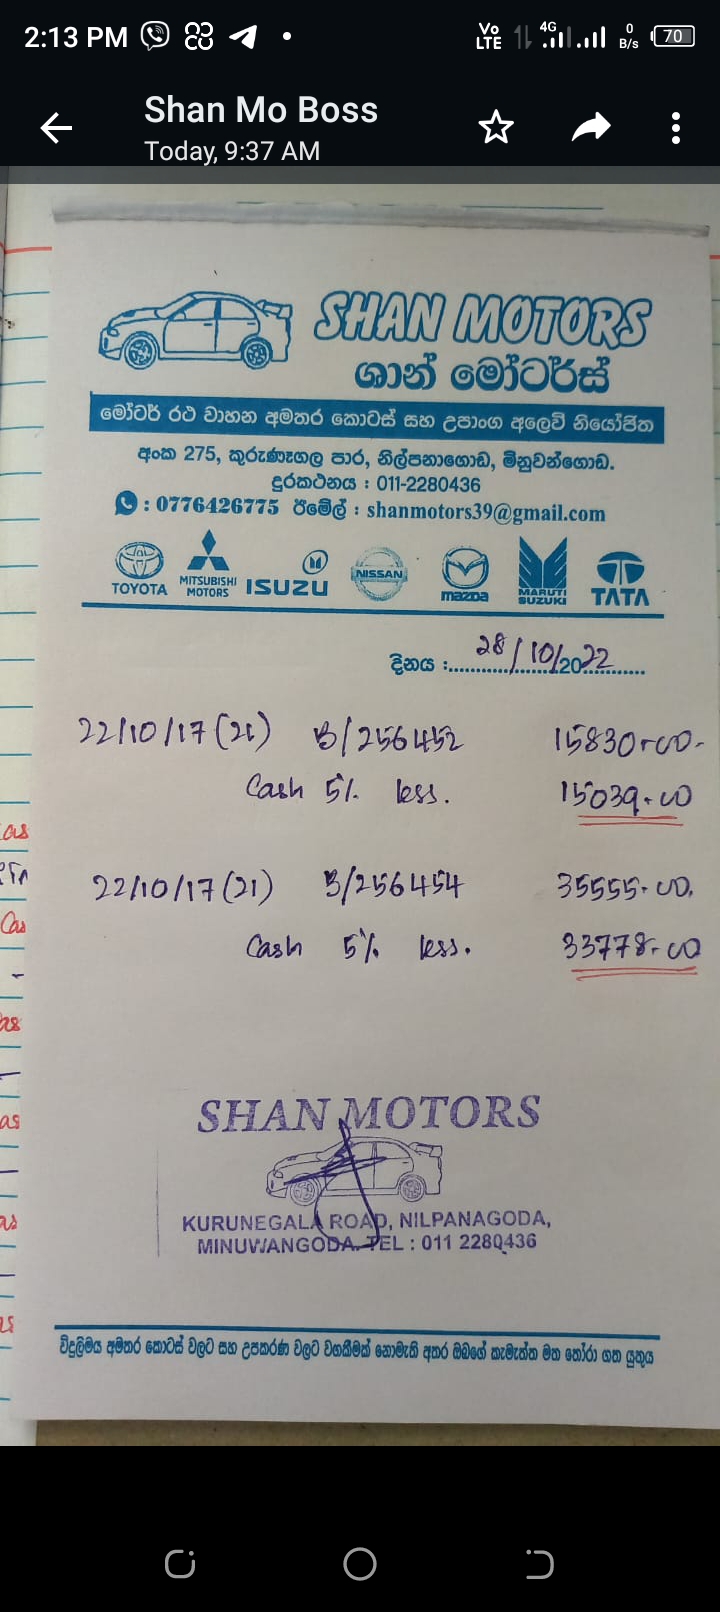 2:13 PM
Vo LTE 4G 0 B/s 70
Shan Mo Boss
Today, 9:37 AM
SHAN MOTORS
ශාන් මෝටර්ස්
මෝටර් රථ වාහන අමතර කොටස් සහ උපාංග අලෙවි නියෝජිත
අංක 275, කුරුණෑගල පාර, නිල්පනාගොඩ, මිනුවන්ගොඩ.
දුරකථනය : 011-2280436
: 0776426775 ඊමේල් : shanmotors39@gmail.com
TOYOTA MITSUBISHI MOTORS ISUZU NISSAN mazda MARUTI SUZUKI TATA
දිනය : 28/10/2022
22/10/17 (21) B/256452 15830-00-
Cash 5% less. 15039-00
22/10/17 (21) B/256454 35555-00.
Cash 5% less. 33778-00
SHAN MOTORS
KURUNEGALA ROAD, NILPANAGODA,
MINUWANGODA. TEL : 011 2280436
විදුලිමය අමතර කොටස් වලට සහ උපකරණ වලට වගකීමක් නොමැති අතර ඔබගේ කැමැත්ත මත තෝරා ගත යුතුය